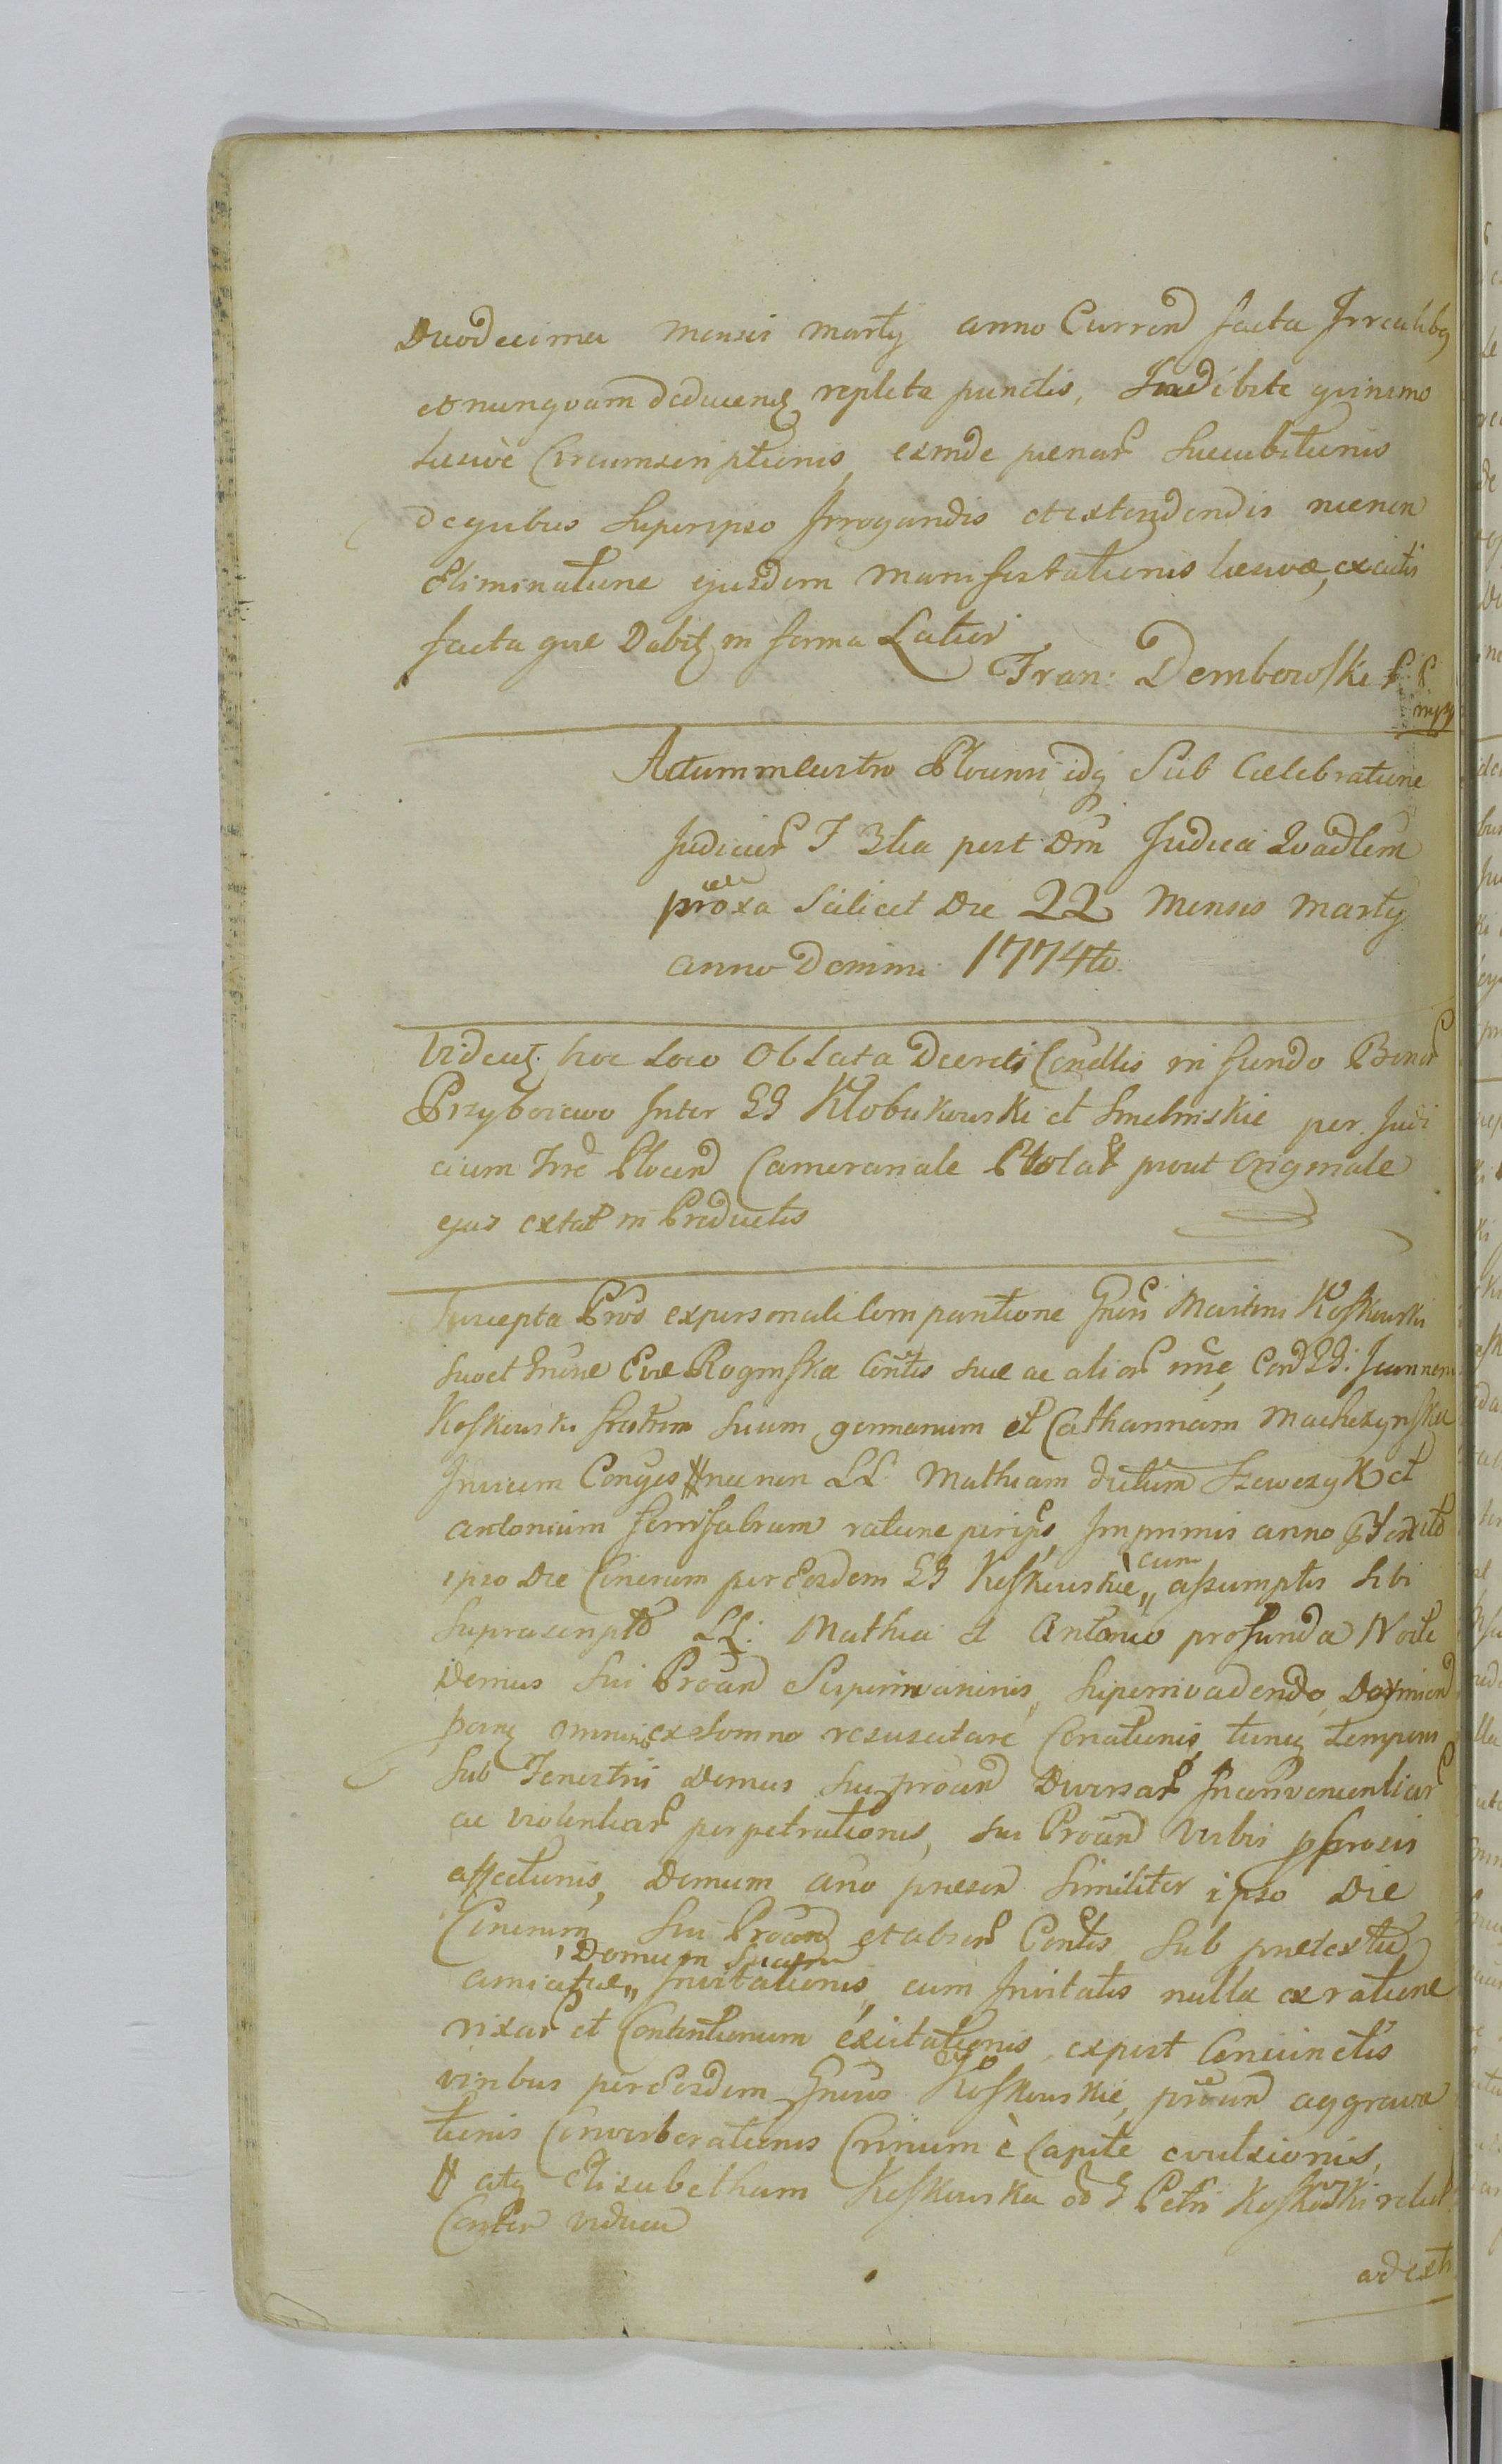 Duodecima mensis Martij anno Curren facta Irrealibq
et nunquam deducenq repleta punctis, Indebite quinimo
lesive Circumscriptionis, exinde penar Succubitionis
de quibus Superipso Irrogandis et extendendis necnon
Eliminatione ejusdem manifestationis lesivæ, ex citis
facta que Dabit in forma Latior
Fran: Dembowski
mpp
Actum in Castro Plocensi idq Sub Celebratione
Judicior F 3tia post Dm Judica Quadlem
proxa Scilicet Die 22 Mensis Martij
anno Domini 1774to
Videat hoc Loco Oblata Decreti Condlis in fundo Bonor
Przyborowo Inter GG Klobukowski et Smelinskie per Judi
cium Trre Plocen Camerariale prout Originale
ejus extat in Productis
Suscepta Pros ex personali Comparitione Gnosi Martini Koskowski
suo et Gnose Evæ Roginska Contis suæ ac alior nne, Con GG: Joannem
Koskowski fratrem suum germanum et Catharinam Machczynska
Invicem Conjges # necnon LL. Mathiam dictum Szewczyk et
Antonium ferrifabrum ratione Imprimis anno
ipso Die Cinerum per Eosdem GG Koskowskie „ cum assumptis Sibi
Suprascripto LL: Mathia et Antonio profunda Nocte
Domus Sui Procan Superinvasionis, Superinvadendo, Dormien
omnino ex Somno resuscitare Conationis, tunq tempons
Sub Fenestris Domus Sui procan Diversar Inconvenientiar
ac violentiar perpetrationis, sui Procan Verbis probrosis
affectionis, Demum ano presen Similiter ipso Die
Cinerum Sui Procan et absen Contis Sub pretextu
amicitiæ „ Domum Suam Invitationis, cum Invitatis nulla ex ratione
rixar et Contentionum excitationis, expost Coniunctis
viribus per Eosdem Gnosos Koskowskie, procan aggrava
tionis Converberationis Crinium è Capite evulsionis,
# atq Elisabetham Koskowska G Petri Koskowski relict
Conter viduam
ad extr